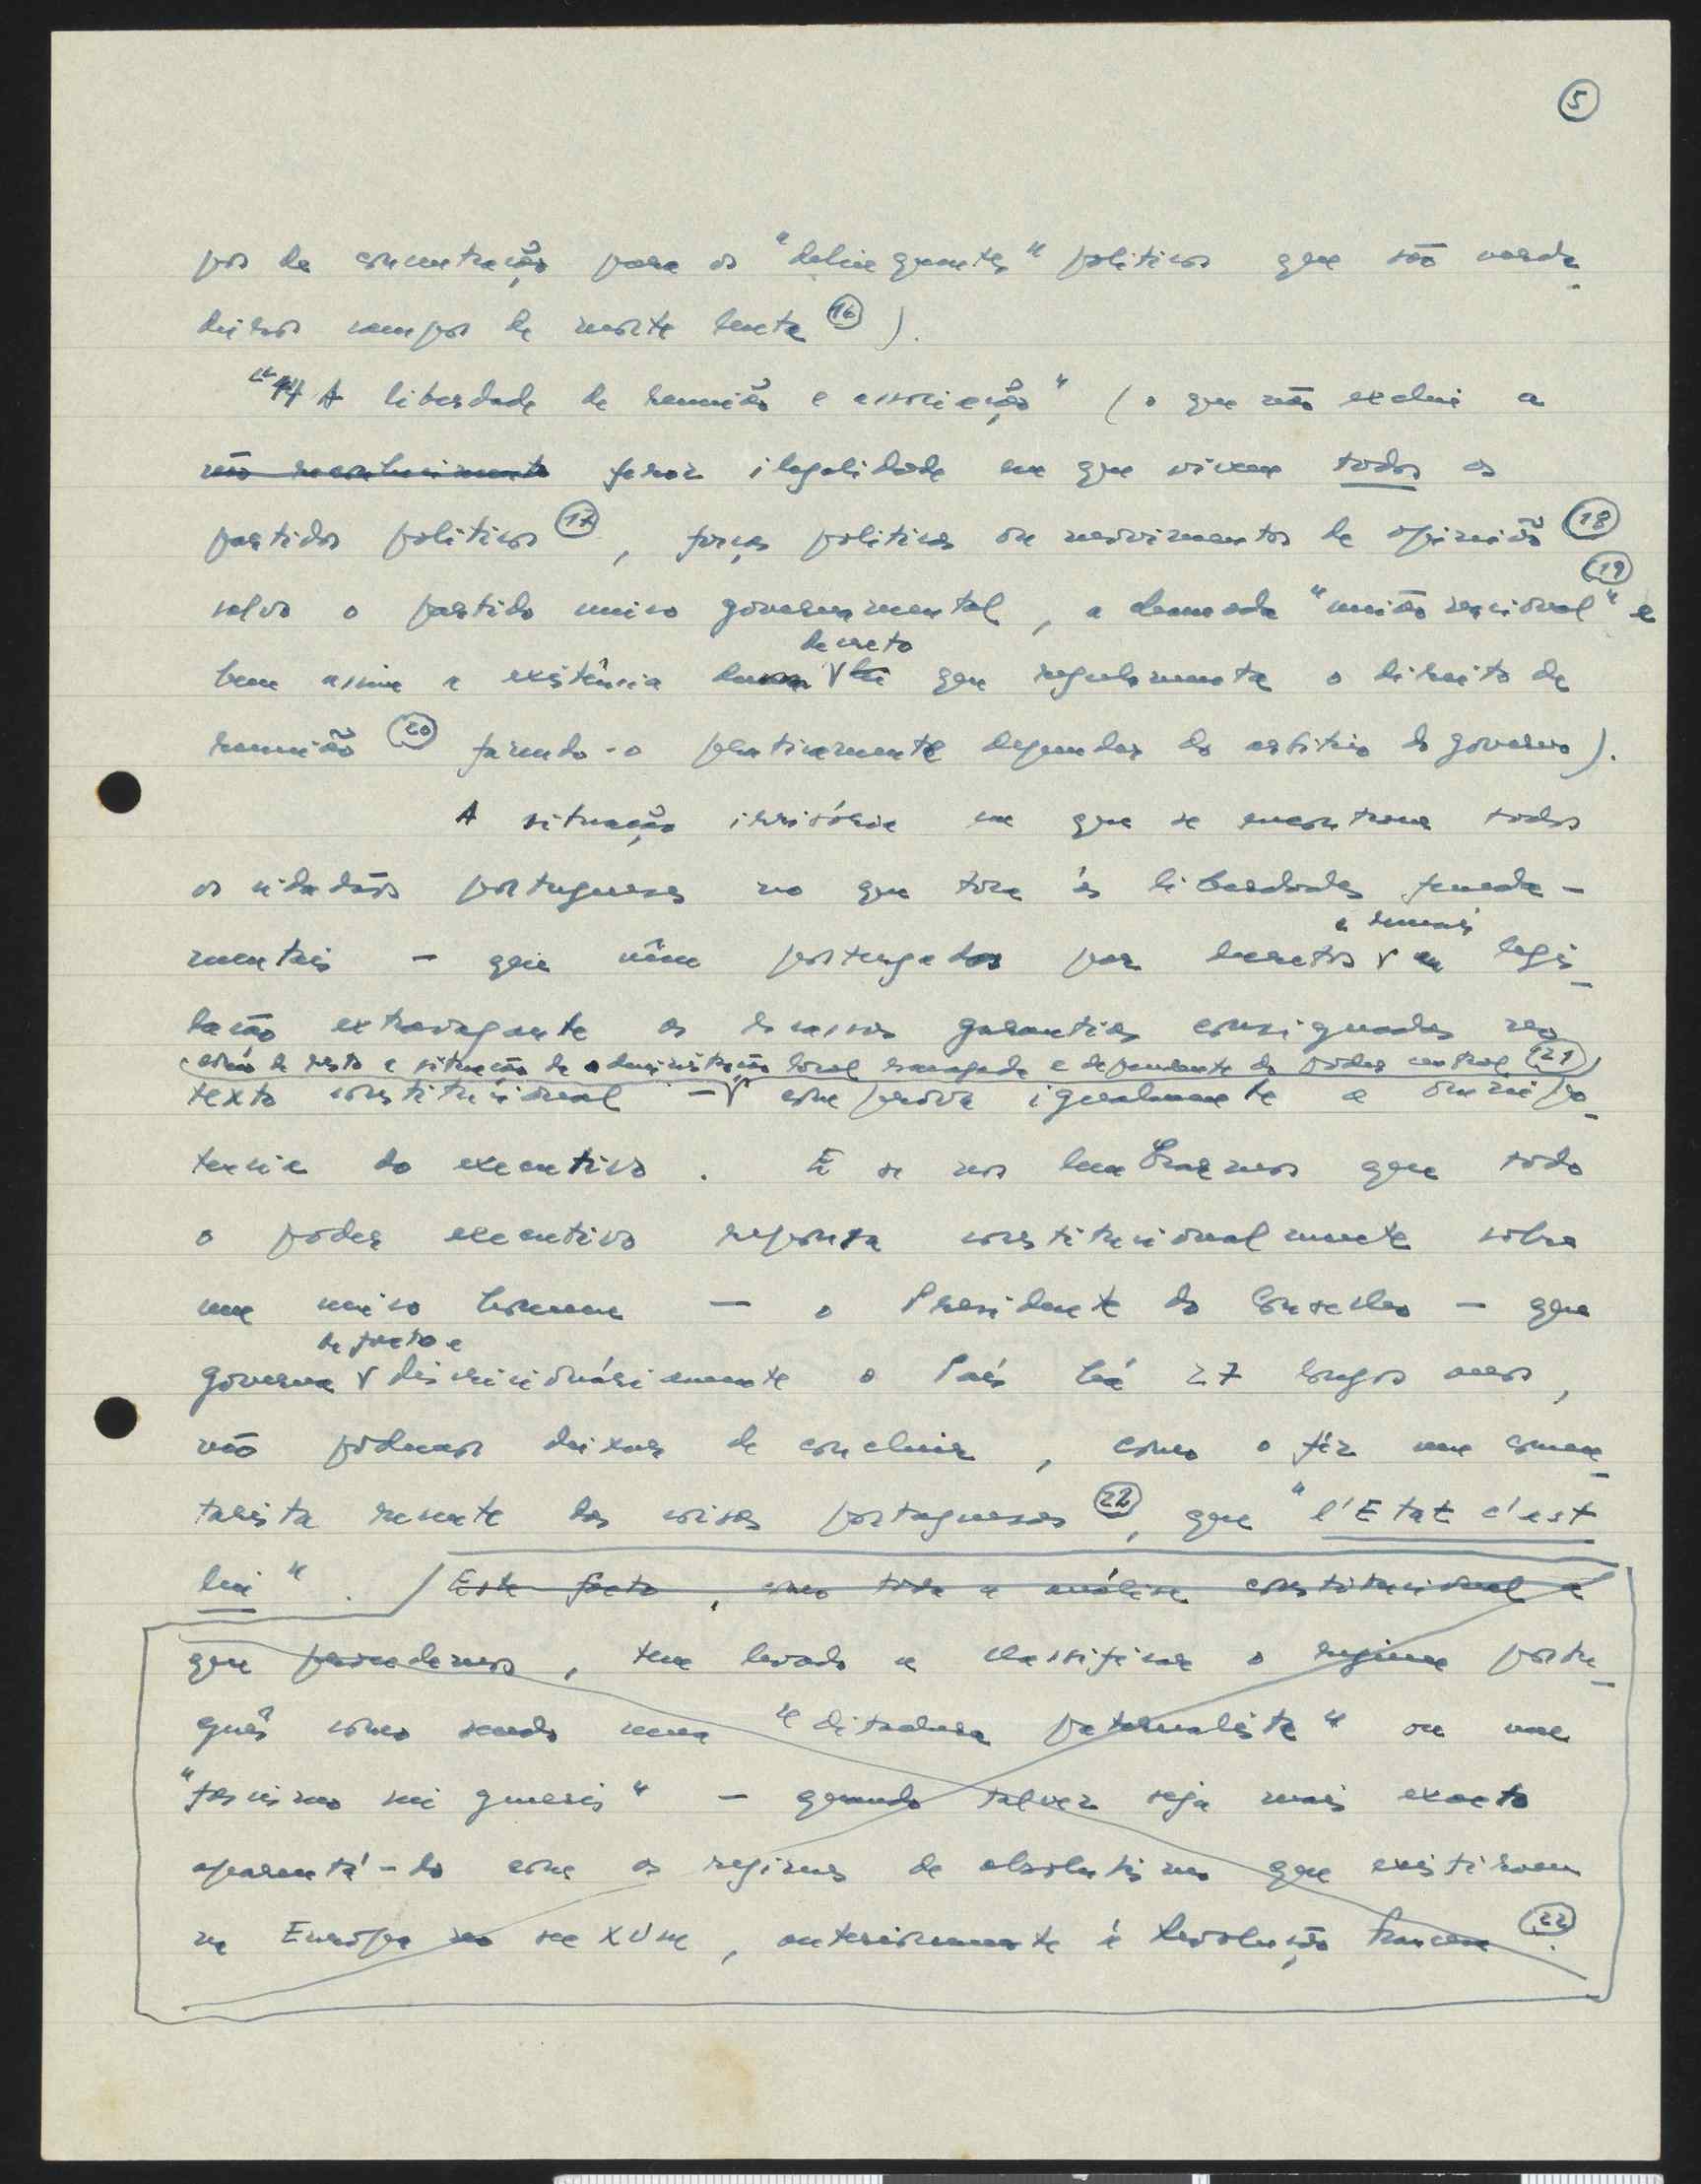 5
pos de concentração para os "delinquentes" politicos que são verda-
deiros campos de morte lenta (16)).
"14 A liberdade de reunião e associação" (o que não exclui a
não reconhecimento feroz ilegalidade em que vivem todos os
partidos politicos (17), forças politicas ou movimentos de opinião (18)
(19)
salvo o partido unico governamental, a chamada "união nacional" e
decreto
bem assim a existência duma lei que regulamenta o direito de
reunião (20) fazendo-o praticamente depender do arbitrio do governo).
A situação irrisória em que se encontram todos
os cidadãos portugueses no que toca ás liberdades funda-
e demais
mentais – que vêm postergadas por decretos e legis-
lação extravagante as escassas garantias consignadas no
(como de resto a situação da administração local esmagada e dependente do poder central (21))
texto constitucional – comprova igualmente a omnipo-
tencia do executivo. E se nos lembrarmos que todo
o poder executivo repousa constitucionalmente sobre
um unico homem – o Presidente do Conselho – que
de facto e
governa discricionáriamente o País há 27 longos anos,
não podemos deixar de concluir, como o fêz um comen-
tarista recente das coisas portuguesas (22), que "l'Etat c'est
lui". Este facto, como toda a análise constitucional a
que procedemos, tem levado a classificar o regime portu-
guês como sendo uma "ditadura paternalista" ou um
"fascismo sui generis" – quando talvez seja mais exacto
aparentá-lo com os regimes de absolutismo que existiram
na Európa no sec XVIII, anteriormente á Revolução Francesa (22).